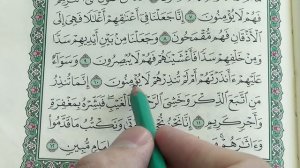 فَهُمْ لَا يُؤْمِنُونَ ٧ إِنَّا جَعَلْنَا فِىٓ أَعْنَٰقِهِمْ أَغْلَٰلًا فَهِىَ إِلَى
ٱلْأَذْقَانِ فَهُم مُّقْمَحُونَ ٨ وَجَعَلْنَا مِنۢ بَيْنِ أَيْدِيهِمْ سَدًّا
وَمِنْ خَلْفِهِمْ سَدًّا فَأَغْشَيْنَٰهُمْ فَهُمْ لَا يُبْصِرُونَ ٩ وَسَوَآءٌ
عَلَيْهِمْ ءَأَنذَرْتَهُمْ أَمْ لَمْ تُنذِرْهُمْ لَا يُؤْمِنُونَ ١٠ إِنَّمَا تُنذِرُ
مَنِ ٱتَّبَعَ ٱلذِّكْرَ وَخَشِىَ ٱلْغَيْبِ فَبَشِّرْهُ بِمَغْفِرَةٍ
وَأَجْرٍ كَرِيمٍ ١١ وَنَكْتُبُ مَا قَدَّمُوا۟
وَءَاثَٰرَهُمْ إِمَامٍ مُّبِينٍ ١٢